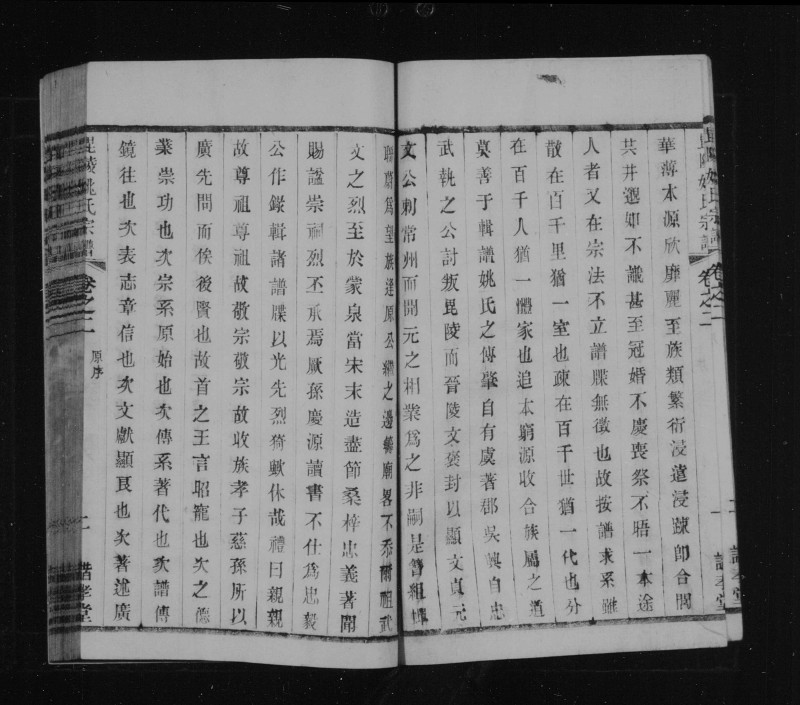 華薄本源欣靡麗至族類繁衍浸遠浸疎卽合閈
共井遇如不識甚至冠婚不慶喪祭不唔一本途
人者又在宗法不立譜牒無徵也故按譜求系雖
散在百千里猶一室也疎在百千世猶一代也分
在百千人猶一體家也追本窮源收合族屬之道
莫善于輯譜姚氏之傳肇自有虞著郡吳興自忠
武執之公討叛毘陵而晉陵文褒封以顯文貞元
文公刺常州而開元之相業為之非嗣是簪組蟬
聯蔚為望族逢原公繼之邊驀廟畧不忝爾祖武
文之烈至於蒙泉當宋末造盡節桑梓忠義著聞
賜諡崇祠烈丕承焉厥孫慶源讀書不仕為忠毅
公作錄輯諸譜牒以光先烈猗歟休哉禮曰親親
故尊祖尊祖故敬宗敬宗故收族孝子慈孫所以
廣先問而俟後賢也故首之王言昭寵也次之德
業崇功也次宗系原始也次傳系著代也次譜傳
鏡往也次表志章信也次文獻顯良也次著述廣
毘陵姚氏宗譜
卷之二
原序
二
諧孝堂
毘陵姚氏宗譜
卷之二